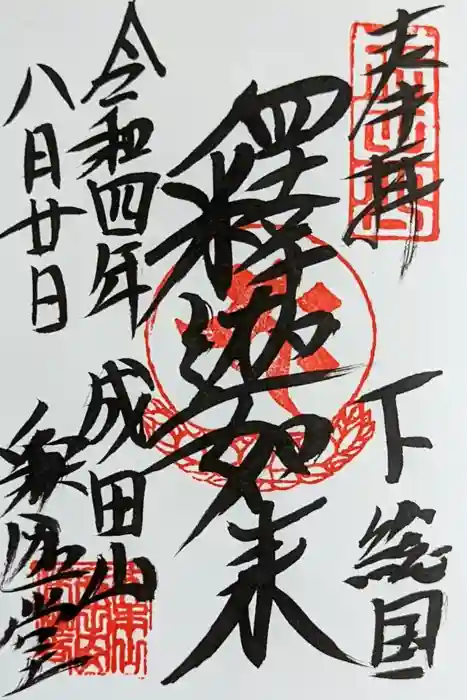 奉拝
下総国
釋迦如来
令和四年
成田山
八月廿日
釈迦堂